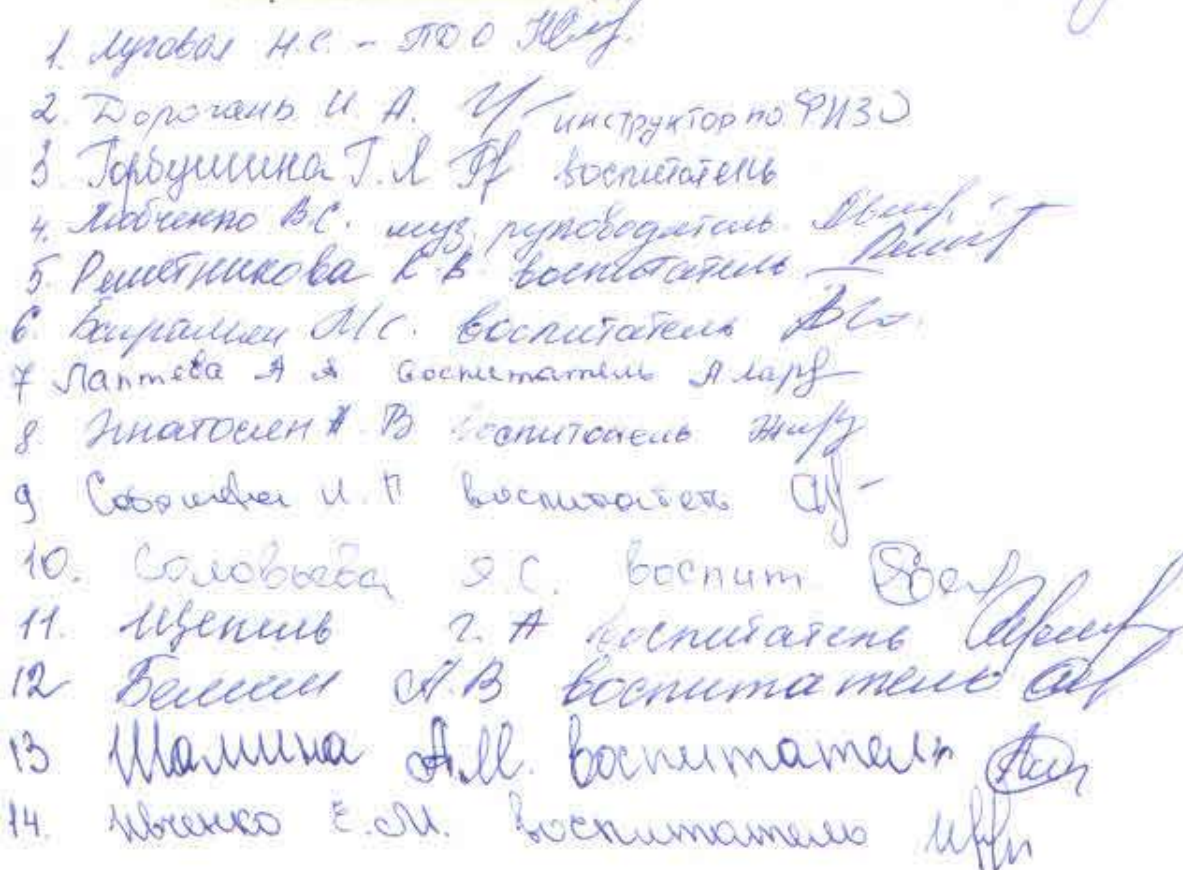 1. Луговая Н.С. - ПДО
2. Дорогань И. А. инструктор по ФИЗО
3 Горбушина Г. Л воспитатель
4. Любченко В.С. муз. руководитель
5. Решетникова К В воспитатель
6. М.С. воспитатель
7 Лаптева А А воспитатель
8 А В воспитатель
9 И. П воспитатель
10. Соловьева Я С. воспит
11. Щепиль Г. А воспитатель
12 А.В воспитатель
13 Шамина А.М. воспитатель
14. Ивченко Е.М. воспитатель